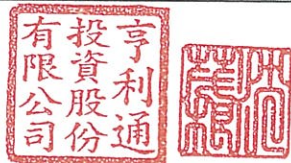 亨利通
投資股份
有限公司